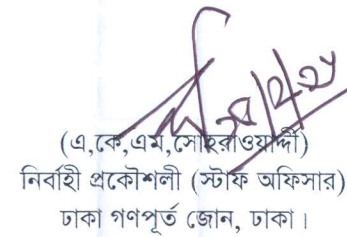 (এ,কে,এম,সোহরাওয়ার্দ্দী)
নির্বাহী প্রকৌশলী (স্টাফ অফিসার)
ঢাকা গণপূর্ত জোন, ঢাকা।